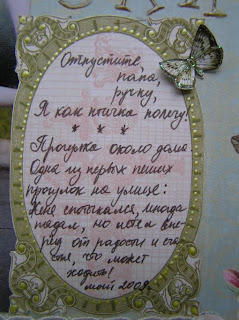 Отпустите,
папа,
ручку,
Я как птичка полечу!
* * *
Прогулка около дома
Одна из первых пеших
прогулок на улице:
Женя спотыкался, иногда
падал, но летел впе-
рёд от радости и сча-
стья, что может
ходить!
май 2009